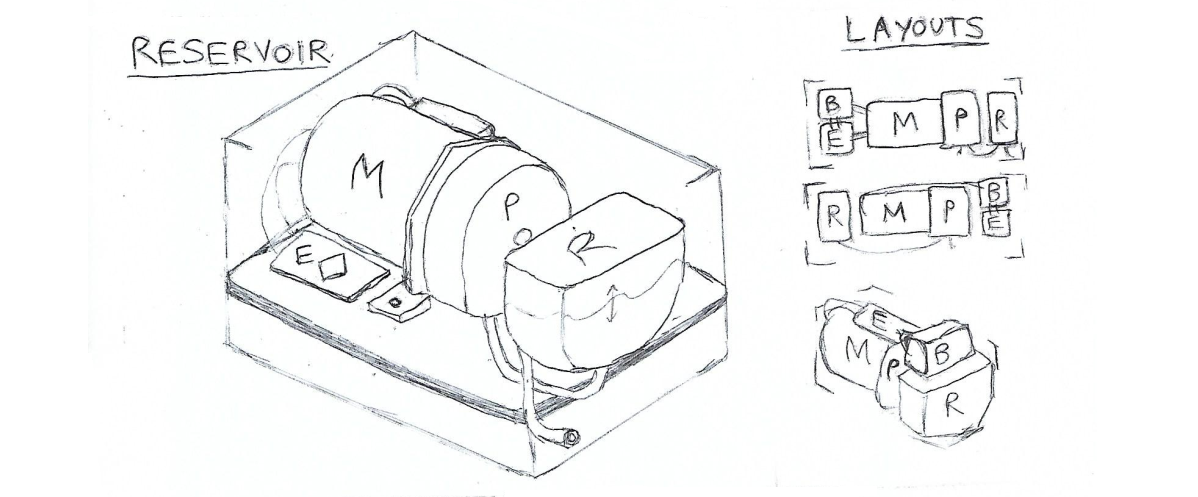 RESERVOIR
M
P
R
E
LAYOUTS
B
E
M
P
R
R
M
P
B
E
E
M
P
B
R